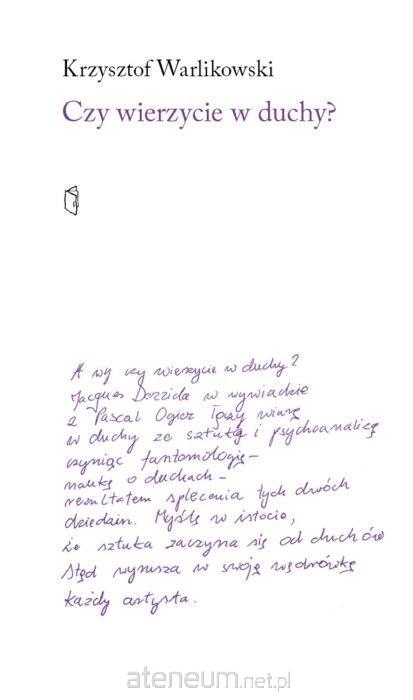 Krzysztof Warlikowski
Czy wierzycie w duchy?
A wy czy wierzycie w duchy?
Jacques Derrida w wywiadzie
z Pascal Ogier łączy wiarę
w duchy ze sztuką i psychoanalizą
czyniąc fantomologię –
naukę o duchach –
rezultatem splecenia tych dwóch
dziedzin. Myślę w istocie,
że sztuka zaczyna się od duchów
stąd wyrusza w swoją wędrówkę
każdy artysta.
ateneum.net.pl